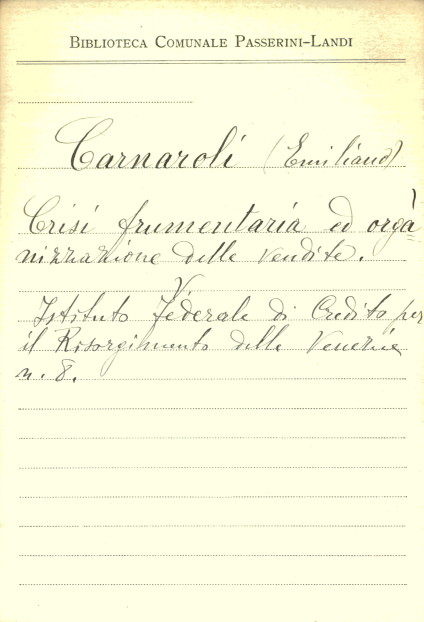 BIBLIOTECA COMUNALE PASSERINI-LANDI
Carnaroli (Emiliano)
Crisi frumentaria ed orga-
nizzazione delle vendite.
V
Istituto Federale di Credito per
il Risorgimento delle Venezie
n. 8.